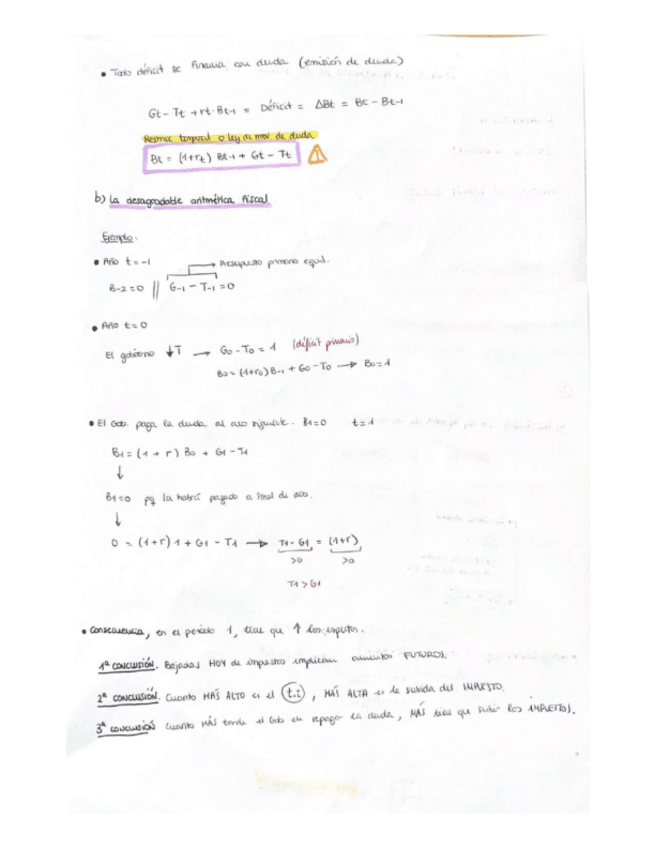 • Todo déficit se financia con deuda (emisión de deuda)
Gt - Tt + rt·Bt-1 = Déficit = ΔBt = Bt - Bt-1
Restricc temporal o ley de mov. de deuda
Bt = (1+rt) Bt-1 + Gt - Tt
b) La desagradable aritmética fiscal
Ejemplo:
• Año t = -1
→ Presupuesto primario equil.
B-2 = 0 || G-1 - T-1 = 0
• Año t = 0
El gobierno ↓T → G0 - T0 = 1 (déficit primario)
B0 = (1+r0) B-1 + G0 - T0 → B0 = 1
• El Gob. paga la deuda al año siguiente. B1=0 t=1
B1 = (1 + r) B0 + G1 - T1
↓
B1=0 pq la habrá pagado a final de año.
↓
0 = (1+r) 1 + G1 - T1 → T1 - G1 = (1+r)
>0 >0
T1 > G1
• Consecuencia, en el periodo 1, tiene que ↑ los impuestos.
1ª CONCLUSIÓN. Bajadas HOY de impuestos implican aumentos FUTUROS.
2ª CONCLUSIÓN. Cuanto MÁS ALTO es el (t.i), MÁS ALTA es la subida del IMPUESTO.
3ª CONCLUSIÓN Cuanto MÁS tarde el Gob en repagar la deuda, MÁS tiene que subir los IMPUESTOS.